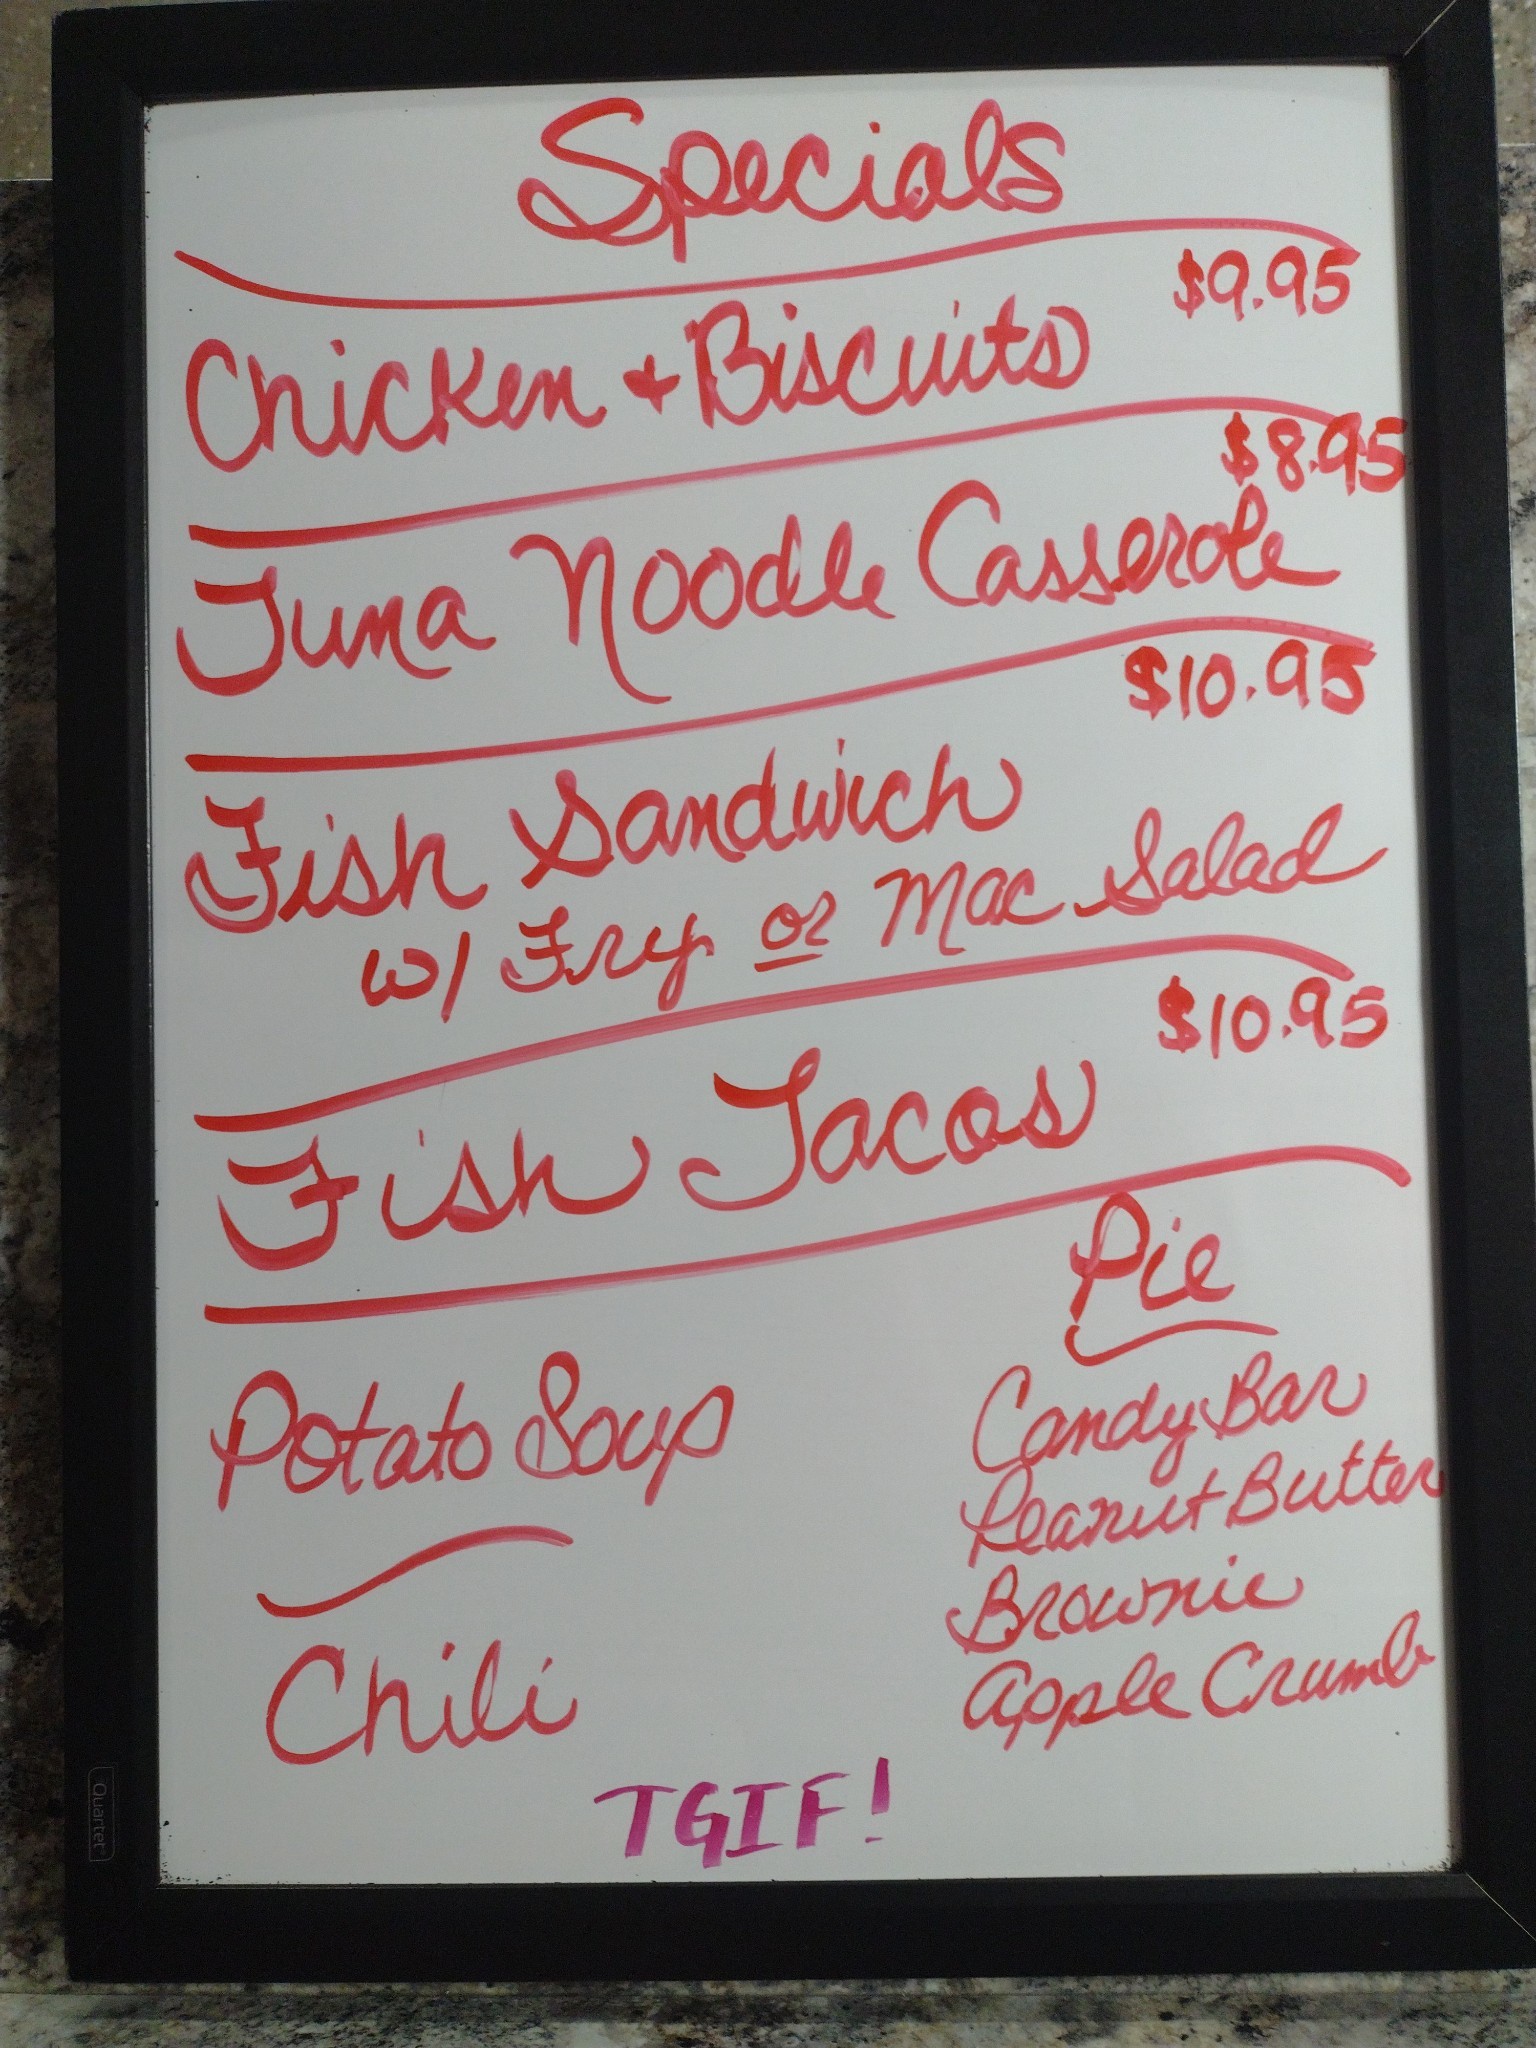 Specials
$9.95
Chicken + Biscuits
$8.95
Tuna Noodle Casserole
$10.95
Fish Sandwich
w/ Fry or Mac Salad
$10.95
Fish Tacos
Pie
Potato Soup
Candy Bar
Peanut Butter
Brownie
Chili
Apple Crumb
TGIF!
Quartet